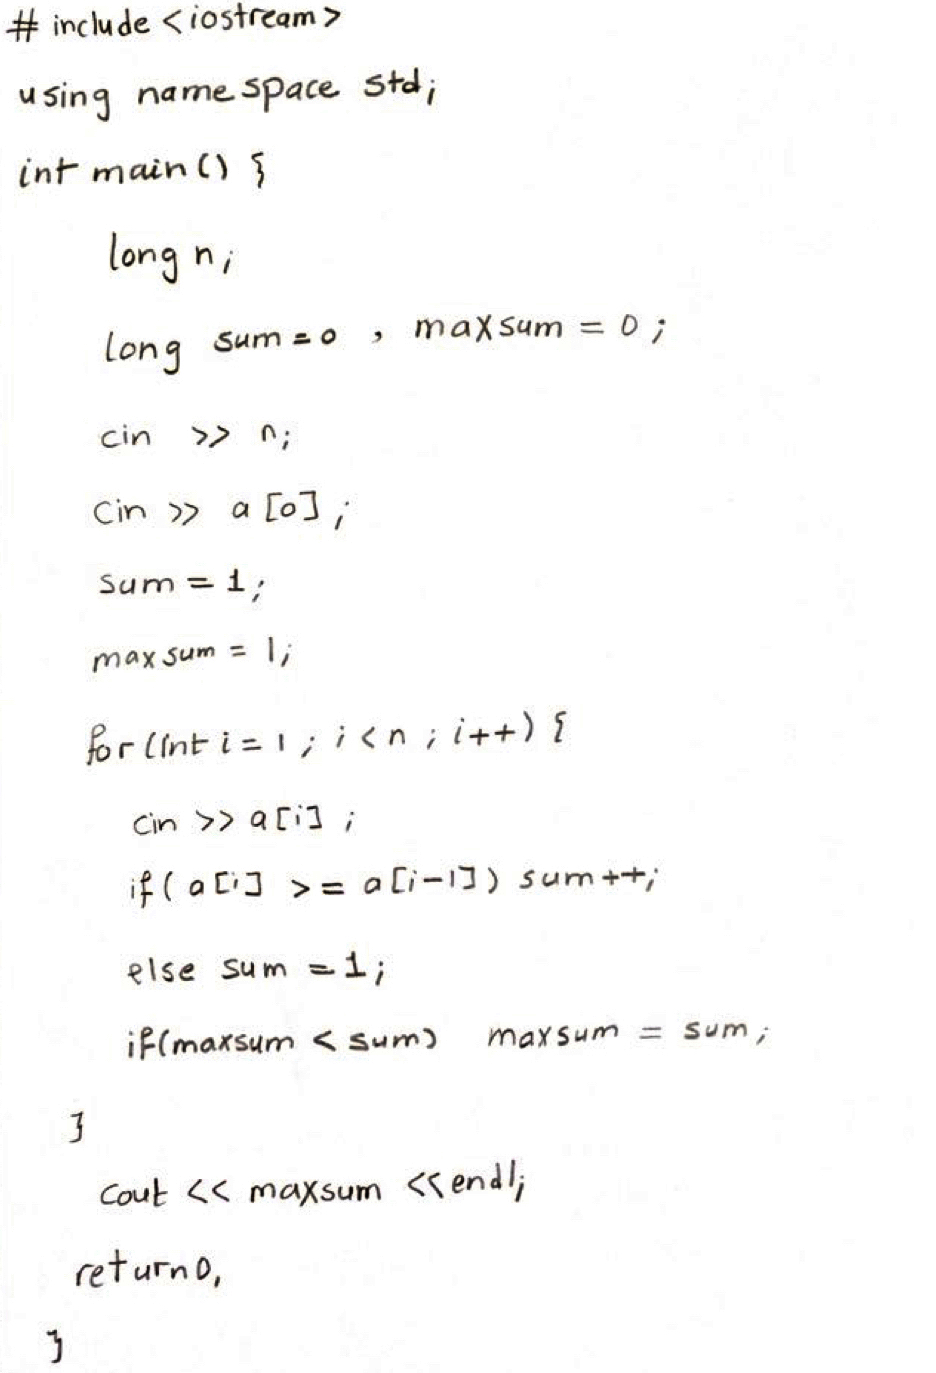 # include <iostream>
using namespace std;
int main() {
long n;
long sum = 0 , maxsum = 0 ;
cin >> n;
cin >> a [0] ;
sum = 1;
maxsum = 1;
for (int i = 1 ; i < n ; i++) {
cin >> a[i] ;
if( a[i] >= a[i-1]) sum++;
else sum = 1;
if(maxsum < sum) maxsum = sum;
}
cout << maxsum << endl;
return 0,
}